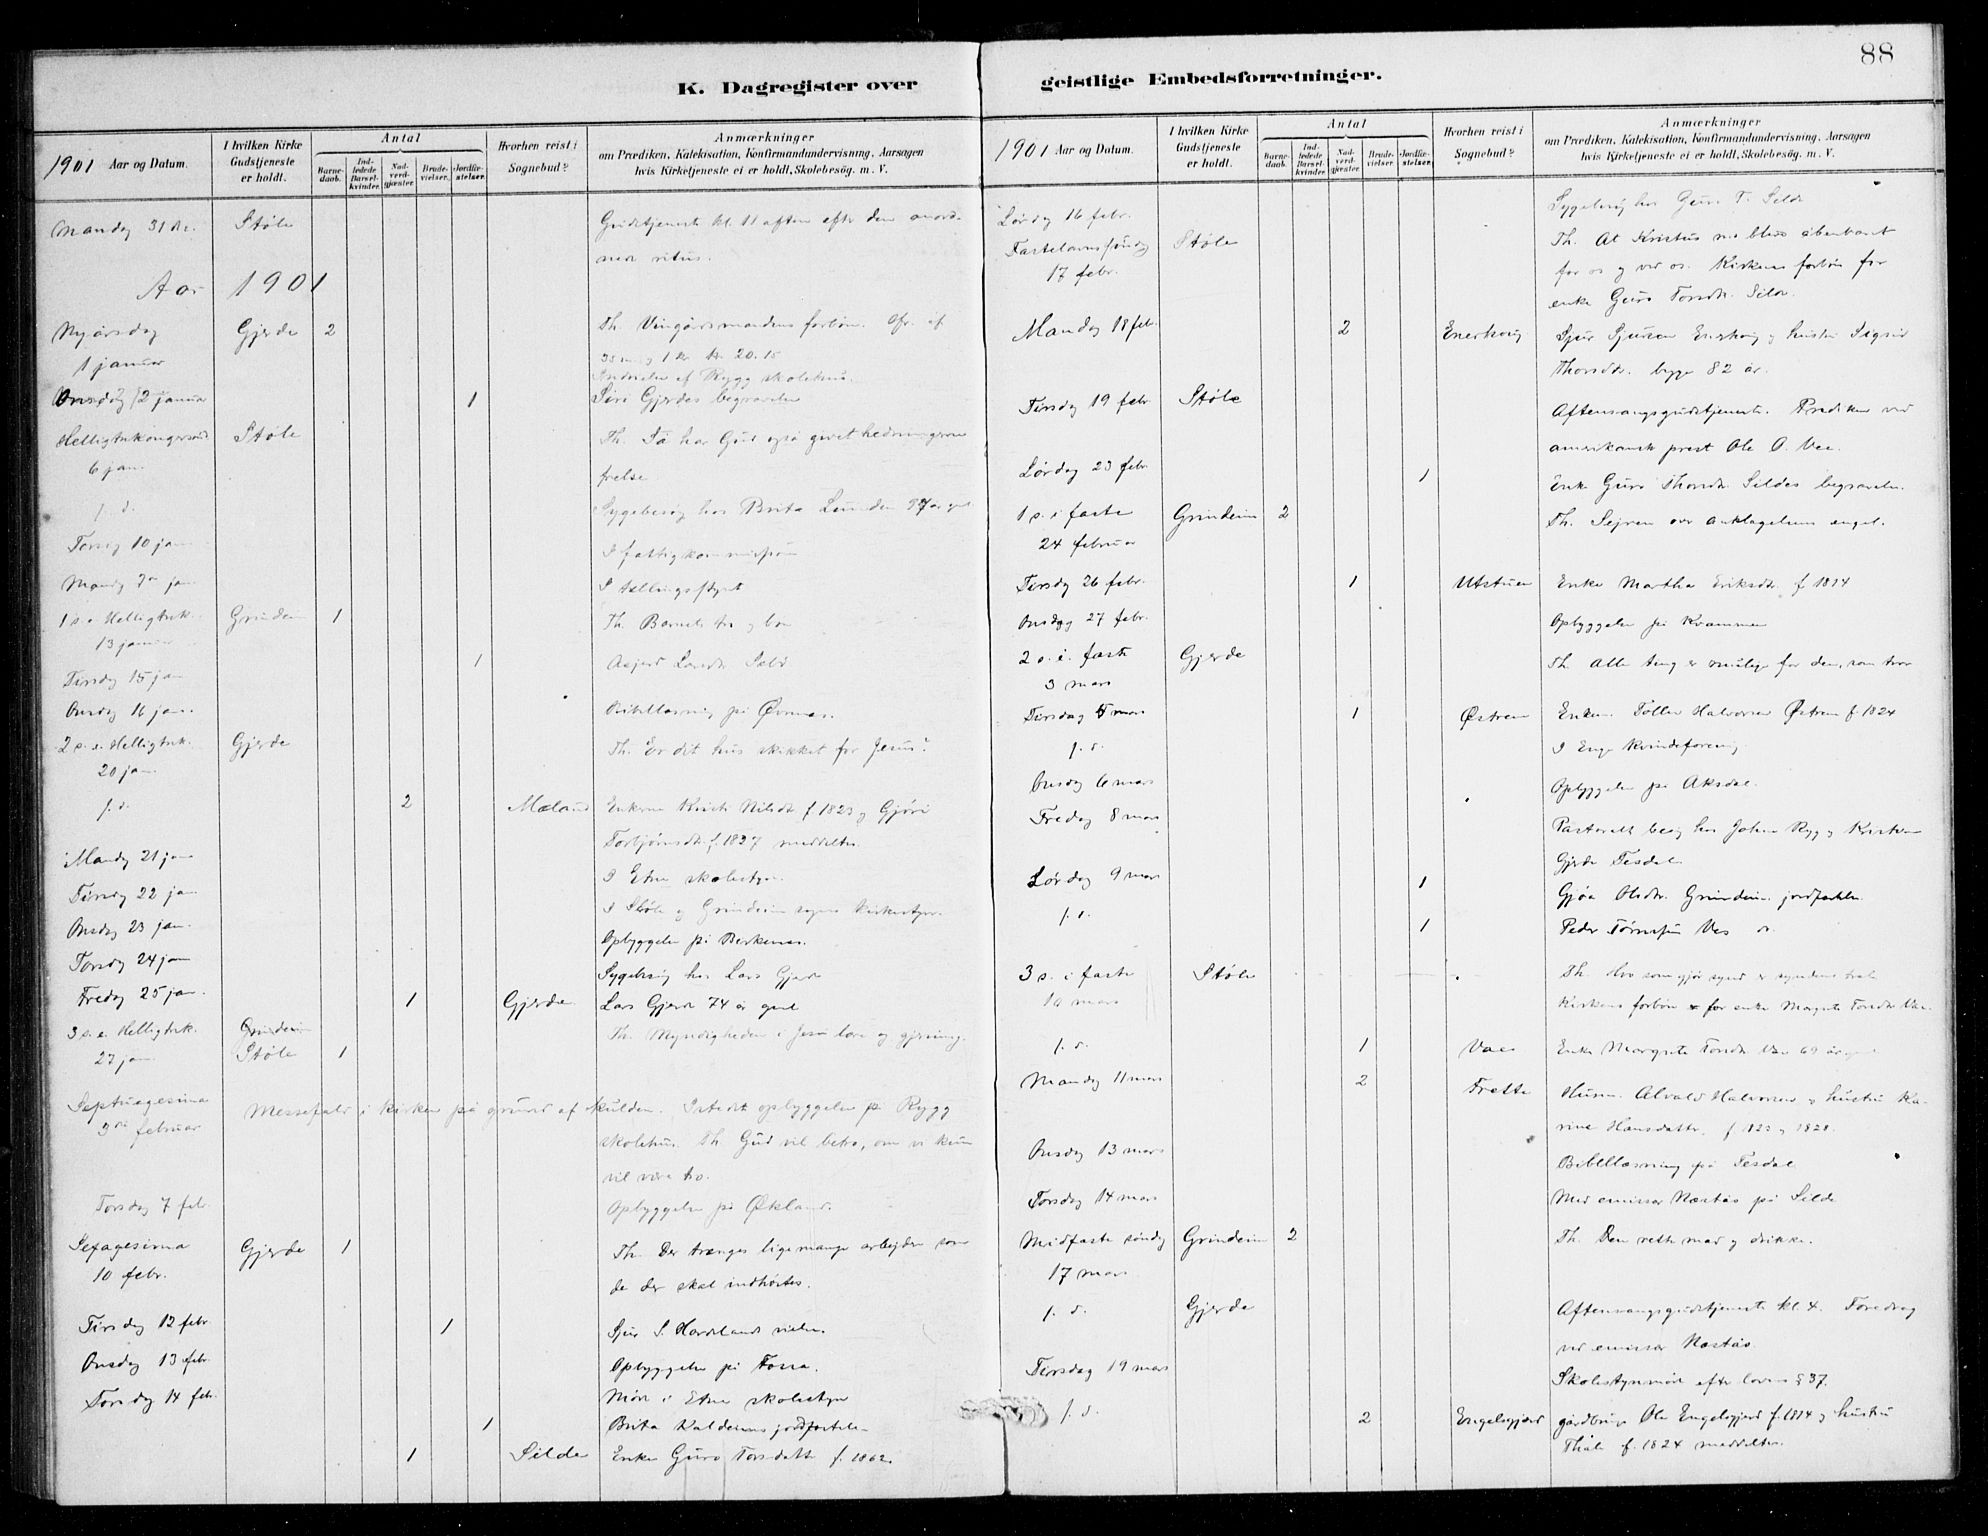 88
K. Dagregister over
1901 Aar og Datum.
I hvilken Kirke Gudstjeneste er holdt.
Antal
Barnedaab.
Indledede Barselkvinder.
Nadverdgjæster
Brudevielser.
Jordfæstelser.
Hvorhen reist i Sognebud?
Anmærkninger
om Prædiken, Katekisation, Konfirmandundervisning, Aarsagen
hvis Kirketjeneste ei er holdt, Skolebesøg. m. V.
Mandag 31 Støle Gudstjeneste kl. 11 aften efter den anord-
nede ritus.
Aar 1901
Nyårsdag Gjerde 2 Th. Vingårdsmandens forbøn. Ofr. af
1 januar
Indvielse af Rygg skolehus.
Onsdag 2 januar 1 Siri Gjerdes begravelse
Helligtrekongersønd Støle Th. Så har Gud også givet hedningerne
6 jan. frelse
s. d. Sygebesøg hos Brita Lunde
Torsdag 10 jan I fattigkommissjon
Mandag 7de jan I tellingsstyret
1 s. e. Helligtrek. Grindeim 1 Th. Barnets tro og bøn
13 januar
Tirsdag 15 jan 1
Onsdag 16 jan. Bibellæsning på
2 s. e. Helligtrek. Gjerde Th. Er dit hus skikket for Jesus?
20 jan.
s. d. 2 Mæland Enkerne Nilsdtr f. 1823 og Gjøri
Torbjørnsdtr f. 1827 meddeltes.
Mandag 21 jan I Etne skolestyre.
Tirsdag 22 jan I Støle og Grindeim sogns kirkestyre.
Onsdag 23 jan. Opbyggelse på Berkenes.
Torsdag 24 jan Sygebesøg hos Lars Gjerde
Fredag 25 jan. 1 Gjerde Lars Gjerde 74 år gml
3 s. e. Helligtrek. Grindeim Th. Myndigheden i Jesu lære og gjerning.
27 jan. Støle 1
Septuagesima Messefald i kirken på grund af kulden. Istedet opbyggelse på Rygg
3die februar skolehus. Th. Gud vil betro, om vi kun
vil være tro.
Torsdag 7 febr. Opbyggelse på Økland.
Sexagesima Gjerde 1 Th. Der trænges lige mange arbejdere som
10 febr. de der skal indhøstes.
Tirsdag 12 febr. 1 Sjur S. Hardeland vielse.
Onsdag 13 febr. Opbyggelse på Fosse.
Torsdag 14 febr. Møde i Etne skolestyre
1 Brita
1 Silde Enke Guro Torsdatter f. 1862.
geistlige Embedsforretninger.
1901 Aar og Datum.
I hvilken Kirke Gudstjeneste er holdt.
Antal
Barnedaab.
Indledede Barselkvinder.
Nadverdgjæster
Brudevielser.
Jordfæstelser.
Hvorhen reist i Sognebud?
Anmærkninger
om Prædiken, Katekisation, Konfirmandundervisning, Aarsagen
hvis Kirketjeneste ei er holdt, Skolebesøg. m. V.
Lørdag 16 febr. Sygebesøg hos Guro T. Silde
Fastelavnssøndag Støle Th. At Kristus må blive åbenbaret
17 febr. for os og ved os. Kirkens forbøn for
enke Guro Torsdtr. Silde.
Mandag 18 febr. 2 Enerhoug Sjur Sjursen Enerhoug og hustru Sigrid
Thorsdtr. begge 82 år.
Tirsdag 19 febr Støle Aftensangsgudstjeneste. Prædiken ved
amerikansk prest Ole O. Vae.
Lørdag 23 febr. 1 Enke Guro Thorsdtr. Sildes begravelse.
1 s. i faste Grindeim 2 Th. Sejren over anklagelsens engel.
24 februar
Tirsdag 26 febr. 1 Utstuen Enke Martha Eriksdtr. f. 1814
Onsdag 27 febr. Opbyggelse på Kvammen
2 s. i. faste Gjerde Th. Alle ting er mulige for den, som tror
3 mars
Tirsdag 5 mars 1 Østrem Enkem. Tøllev Halvorsen Østrem f. 1824
s. d. I Enge kvindeforening
Onsdag 6 mars Opbyggelse på Aksdal.
Fredag 8 mars Pastoralt besøg hos Johan Rygg og Kristen
Gjerde Tesdal.
Lørdag 9 mars 1 Gjøa Olsdtr. Grindeim jordfæstelse.
s. d. 1 Peder Vas d.
3 s. i faste Støle Th. Hvo som gjør synd er syndens træl
10 mars Kirkens forbøn for enke Margrete Torsdtr Vae.
s. d. 1 Vae Enke Margrete Torsdtr Vae 69 år
Mandag 11 mars 2 Frette Husm. Alvald Halvorsen og hustru Ka-
rine Hansdatter.
Onsdag 13 mars Bibellæsning på Tesdal
Torsdag 14 mars Med emissær Næstås på Silde
Midfaste søndag Grindeim 2 Th. Den rette mad og drikke.
17 mars
s. d. Gjerde Aftensangsgudstjeneste kl. 4. Foredrag
ved emissær Næstås.
Tirsdag 19 mars Skolestyrmøde efter lovens § 37.
s. d. 2 Engelsgjerd gårdbruger Ole Engelsgjerd f. 1814 og hustru
f. 1824 meddeltes.